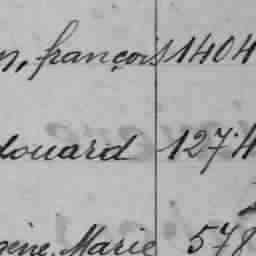 n, françois 1404
douard 1274
gène, Marie 578